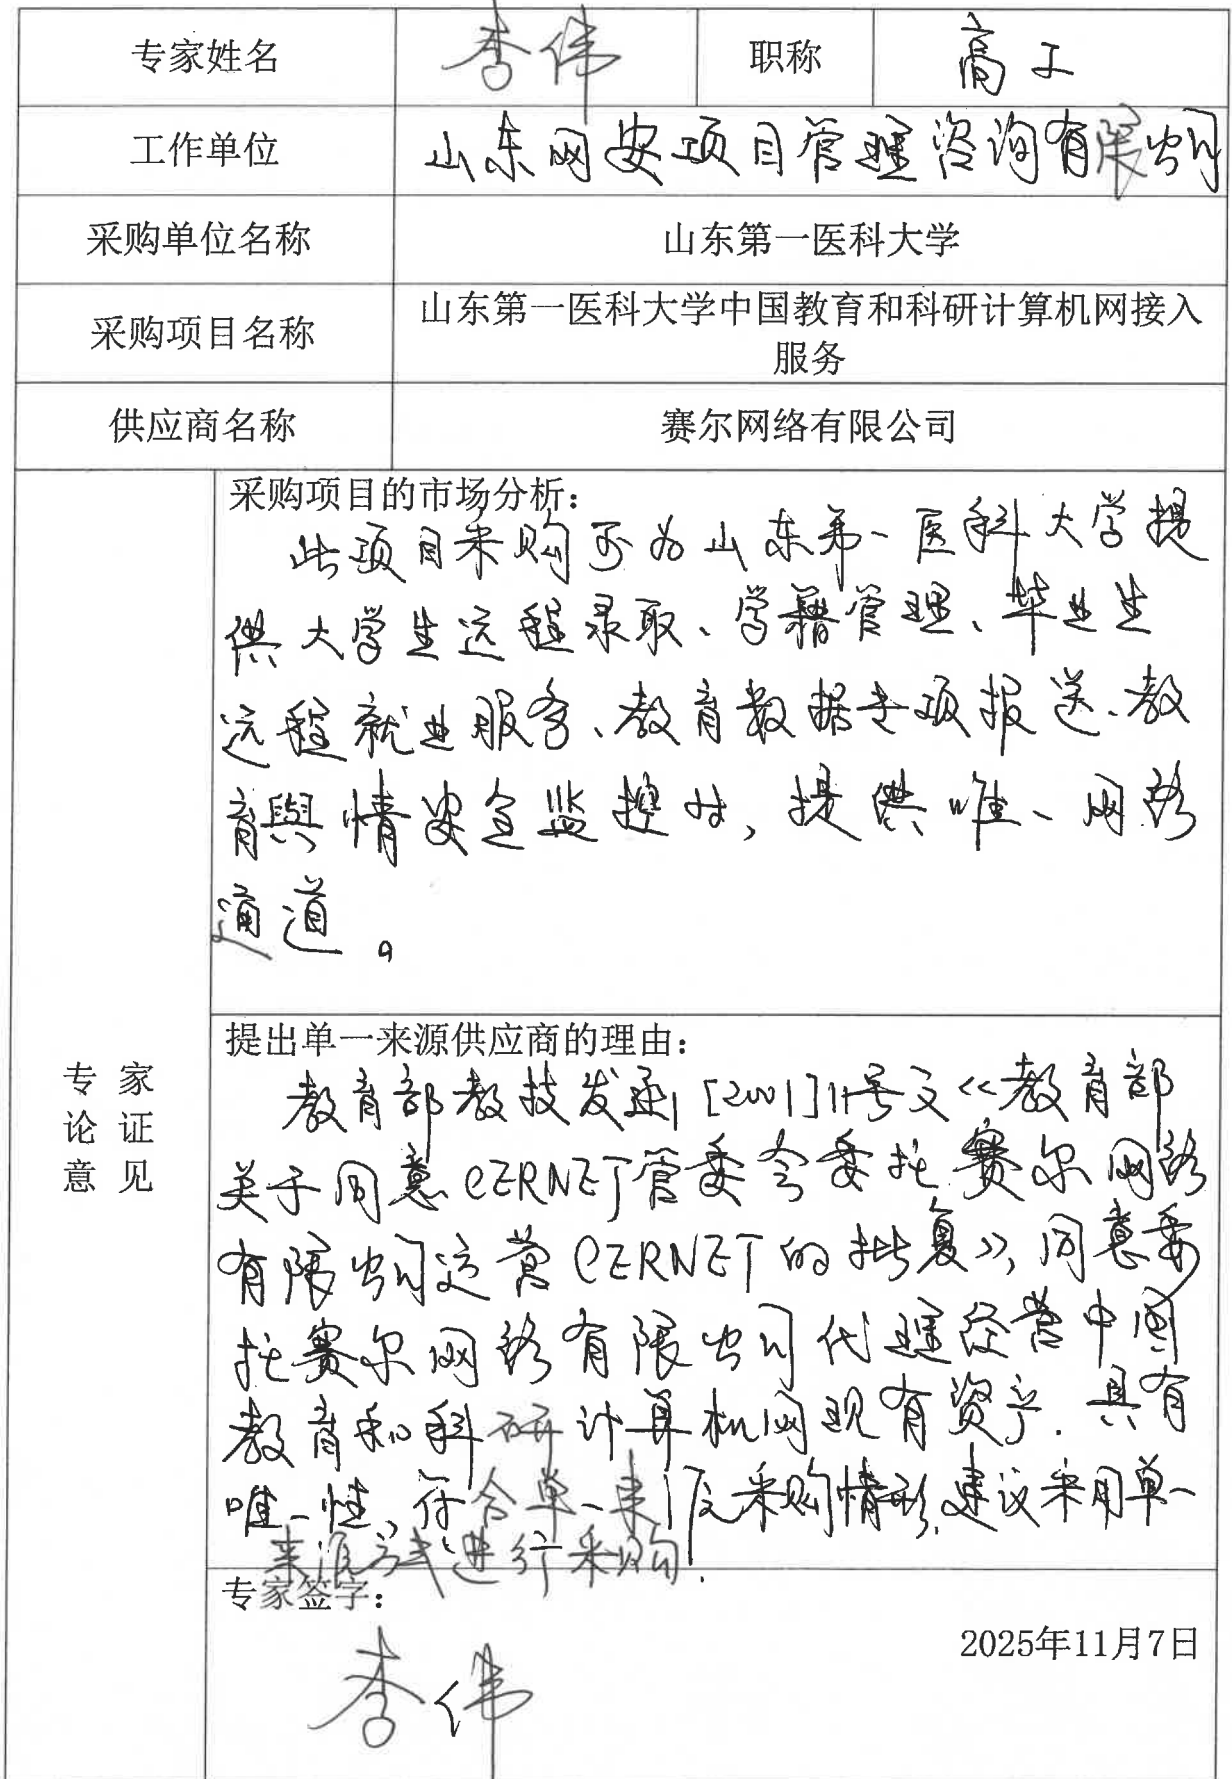 专家姓名 李伟 职称 高工
工作单位 山东网安项目管理咨询有限公司
采购单位名称 山东第一医科大学
采购项目名称 山东第一医科大学中国教育和科研计算机网接入
服务
供应商名称 赛尔网络有限公司
专家
论证
意见
采购项目的市场分析：
此项目采购可为山东第一医科大学提
供大学生远程录取、学籍管理、毕业生
远程就业服务、教育数据专项报送、教
育舆情安全监控时，提供唯一网络
通道。
提出单一来源供应商的理由：
教育部教技发函[2001]11号文《教育部
关于同意CERNET管委会委托赛尔网络
有限公司运营CERNET的批复》，同意委
托赛尔网络有限公司代理经营中国
教育和科研计算机网现有资产．具有
唯一性，符合单一来源采购情形，建议采用单一
来源方式进行采购．
专家签字：
李伟
2025年11月7日